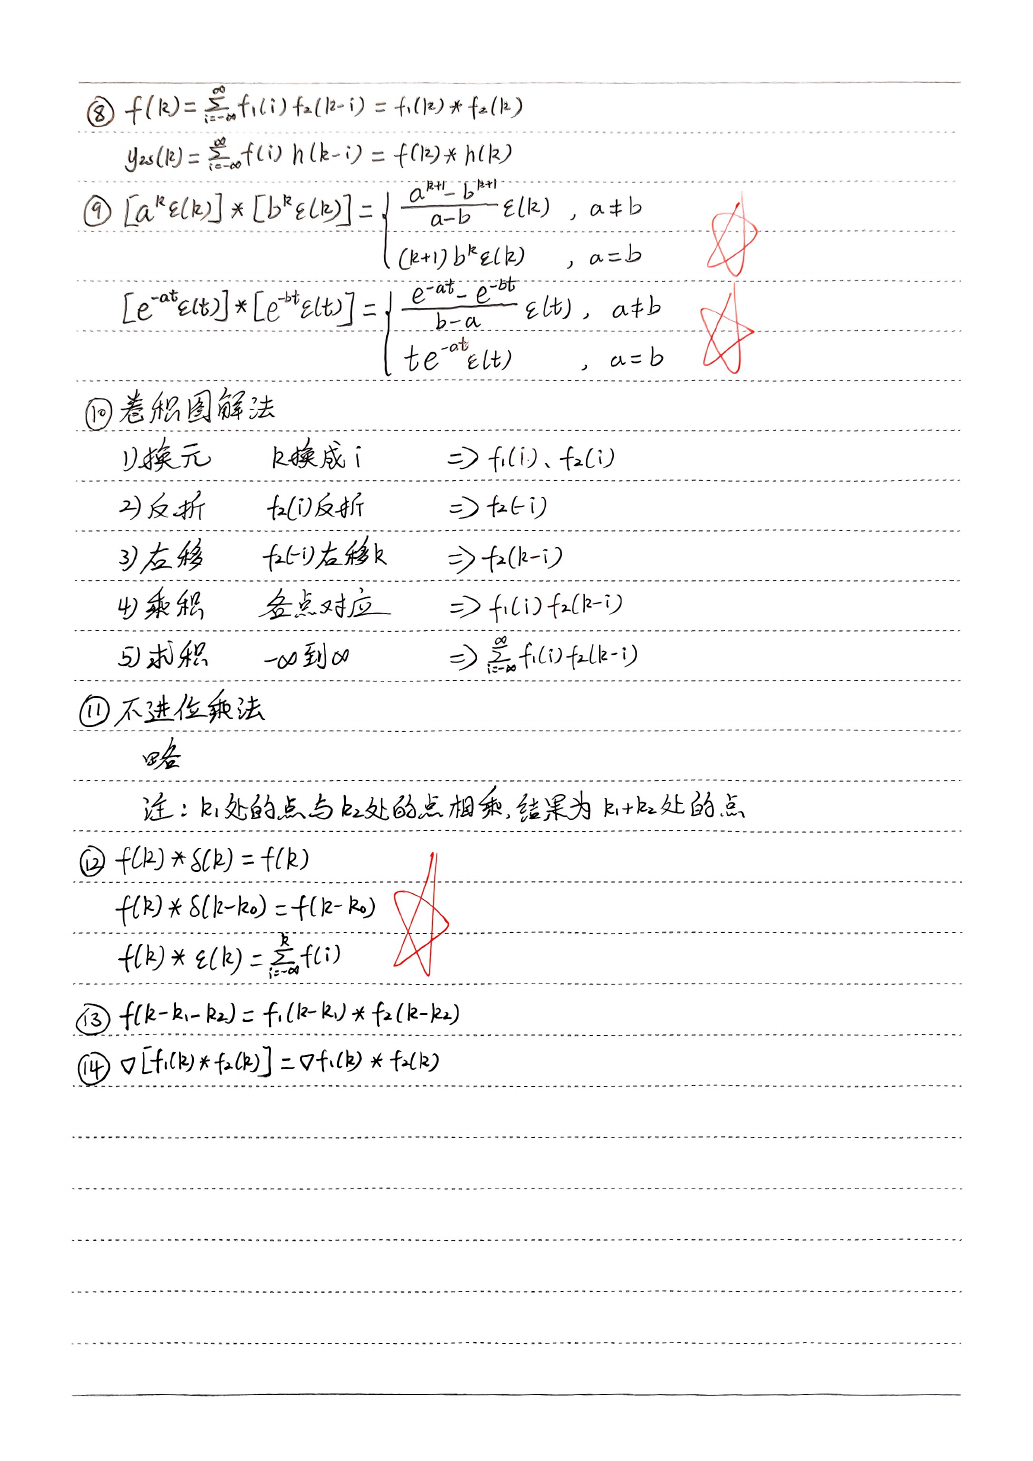 ⑧ f(k)=∑_{i=-∞}^{∞} f₁(i) f₂(k-i) = f₁(k) * f₂(k)
y_{zs}(k)=∑_{i=-∞}^{∞} f(i) h(k-i) = f(k) * h(k)
⑨ [a^k ε(k)] * [b^k ε(k)] = { (a^{k+1} - b^{k+1})/(a-b) ε(k) , a≠b
(k+1) b^k ε(k) , a=b
[e^{-at} ε(t)] * [e^{-bt} ε(t)] = { (e^{-at} - e^{-bt})/(b-a) ε(t) , a≠b
t e^{-at} ε(t) , a=b
⑩ 卷积图解法
1) 换元 k换成i => f₁(i)、f₂(i)
2) 反折 f₂(i)反折 => f₂(-i)
3) 右移 f₂(-i)右移k => f₂(k-i)
4) 乘积 各点对应 => f₁(i) f₂(k-i)
5) 求积 -∞到∞ => ∑_{i=-∞}^{∞} f₁(i) f₂(k-i)
⑪ 不进位乘法
略
注：k₁处的点与k₂处的点相乘,结果为k₁+k₂处的点
⑫ f(k) * δ(k) = f(k)
f(k) * δ(k-k₀) = f(k-k₀)
f(k) * ε(k) = ∑_{i=-∞}^{k} f(i)
⑬ f(k-k₁-k₂) = f₁(k-k₁) * f₂(k-k₂)
⑭ ∇[f₁(k) * f₂(k)] = ∇f₁(k) * f₂(k)